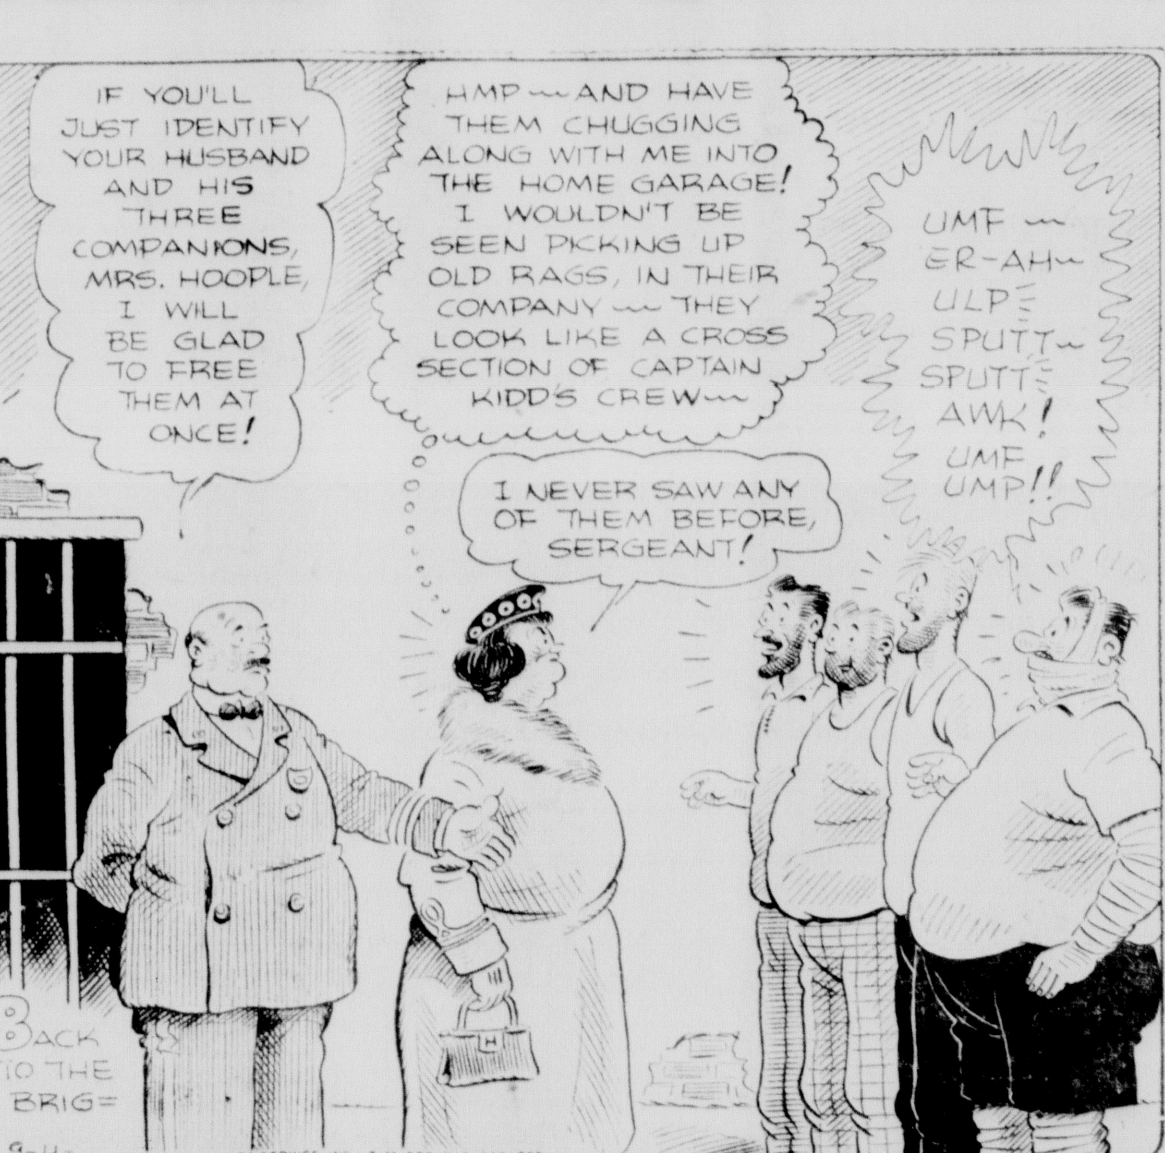 IF YOU'LL
JUST IDENTIFY
YOUR HUSBAND
AND HIS
THREE
COMPANIONS,
MRS. HOOPLE,
I WILL
BE GLAD
TO FREE
THEM AT
ONCE!
HMP ~~ AND HAVE
THEM CHUGGING
ALONG WITH ME INTO
THE HOME GARAGE!
I WOULDN'T BE
SEEN PICKING UP
OLD RAGS, IN THEIR
COMPANY ~~ THEY
LOOK LIKE A CROSS
SECTION OF CAPTAIN
KIDD'S CREW ~~
I NEVER SAW ANY
OF THEM BEFORE,
SERGEANT!
UMF ~~
ER-AH~
ULP
SPUTT~
SPUTT
AWK!
UMF
UMP!!
H
BACK
TO THE
BRIG=
9-11-